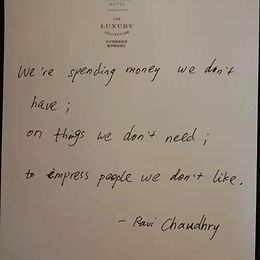 HOTEL
THE
LUXURY
COLLECTION
We're spending money we don't
have;
on things we don't need;
to impress people we don't like.
- Ravi Chaudhry